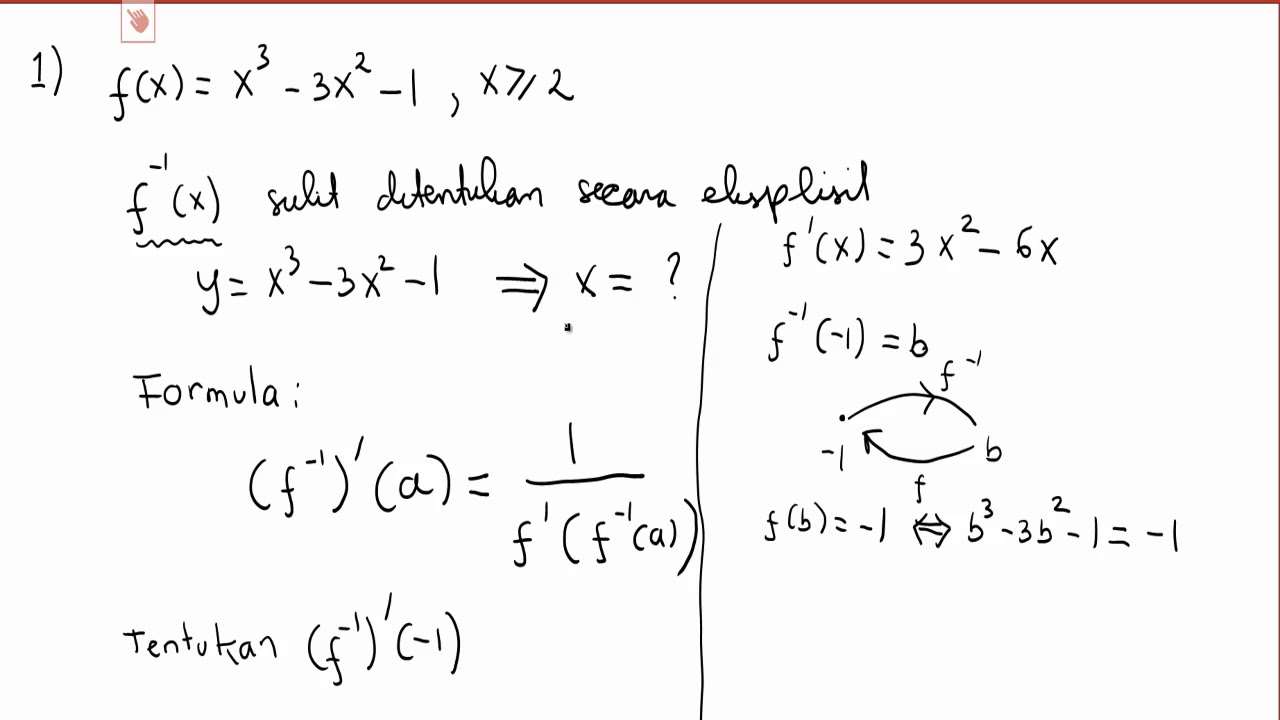 1) f(x) = x³ - 3x² - 1 , x ⩾ 2
f⁻¹(x) sulit ditentukan secara eksplisit
y = x³ - 3x² - 1 ⟹ x = ?
Formula :
(f⁻¹)'(a) = 1 / f'(f⁻¹(a))
Tentukan (f⁻¹)'(-1)
f'(x) = 3x² - 6x
f⁻¹(-1) = b
f⁻¹
-1 b
f
f(b) = -1 ⇔ b³ - 3b² - 1 = -1